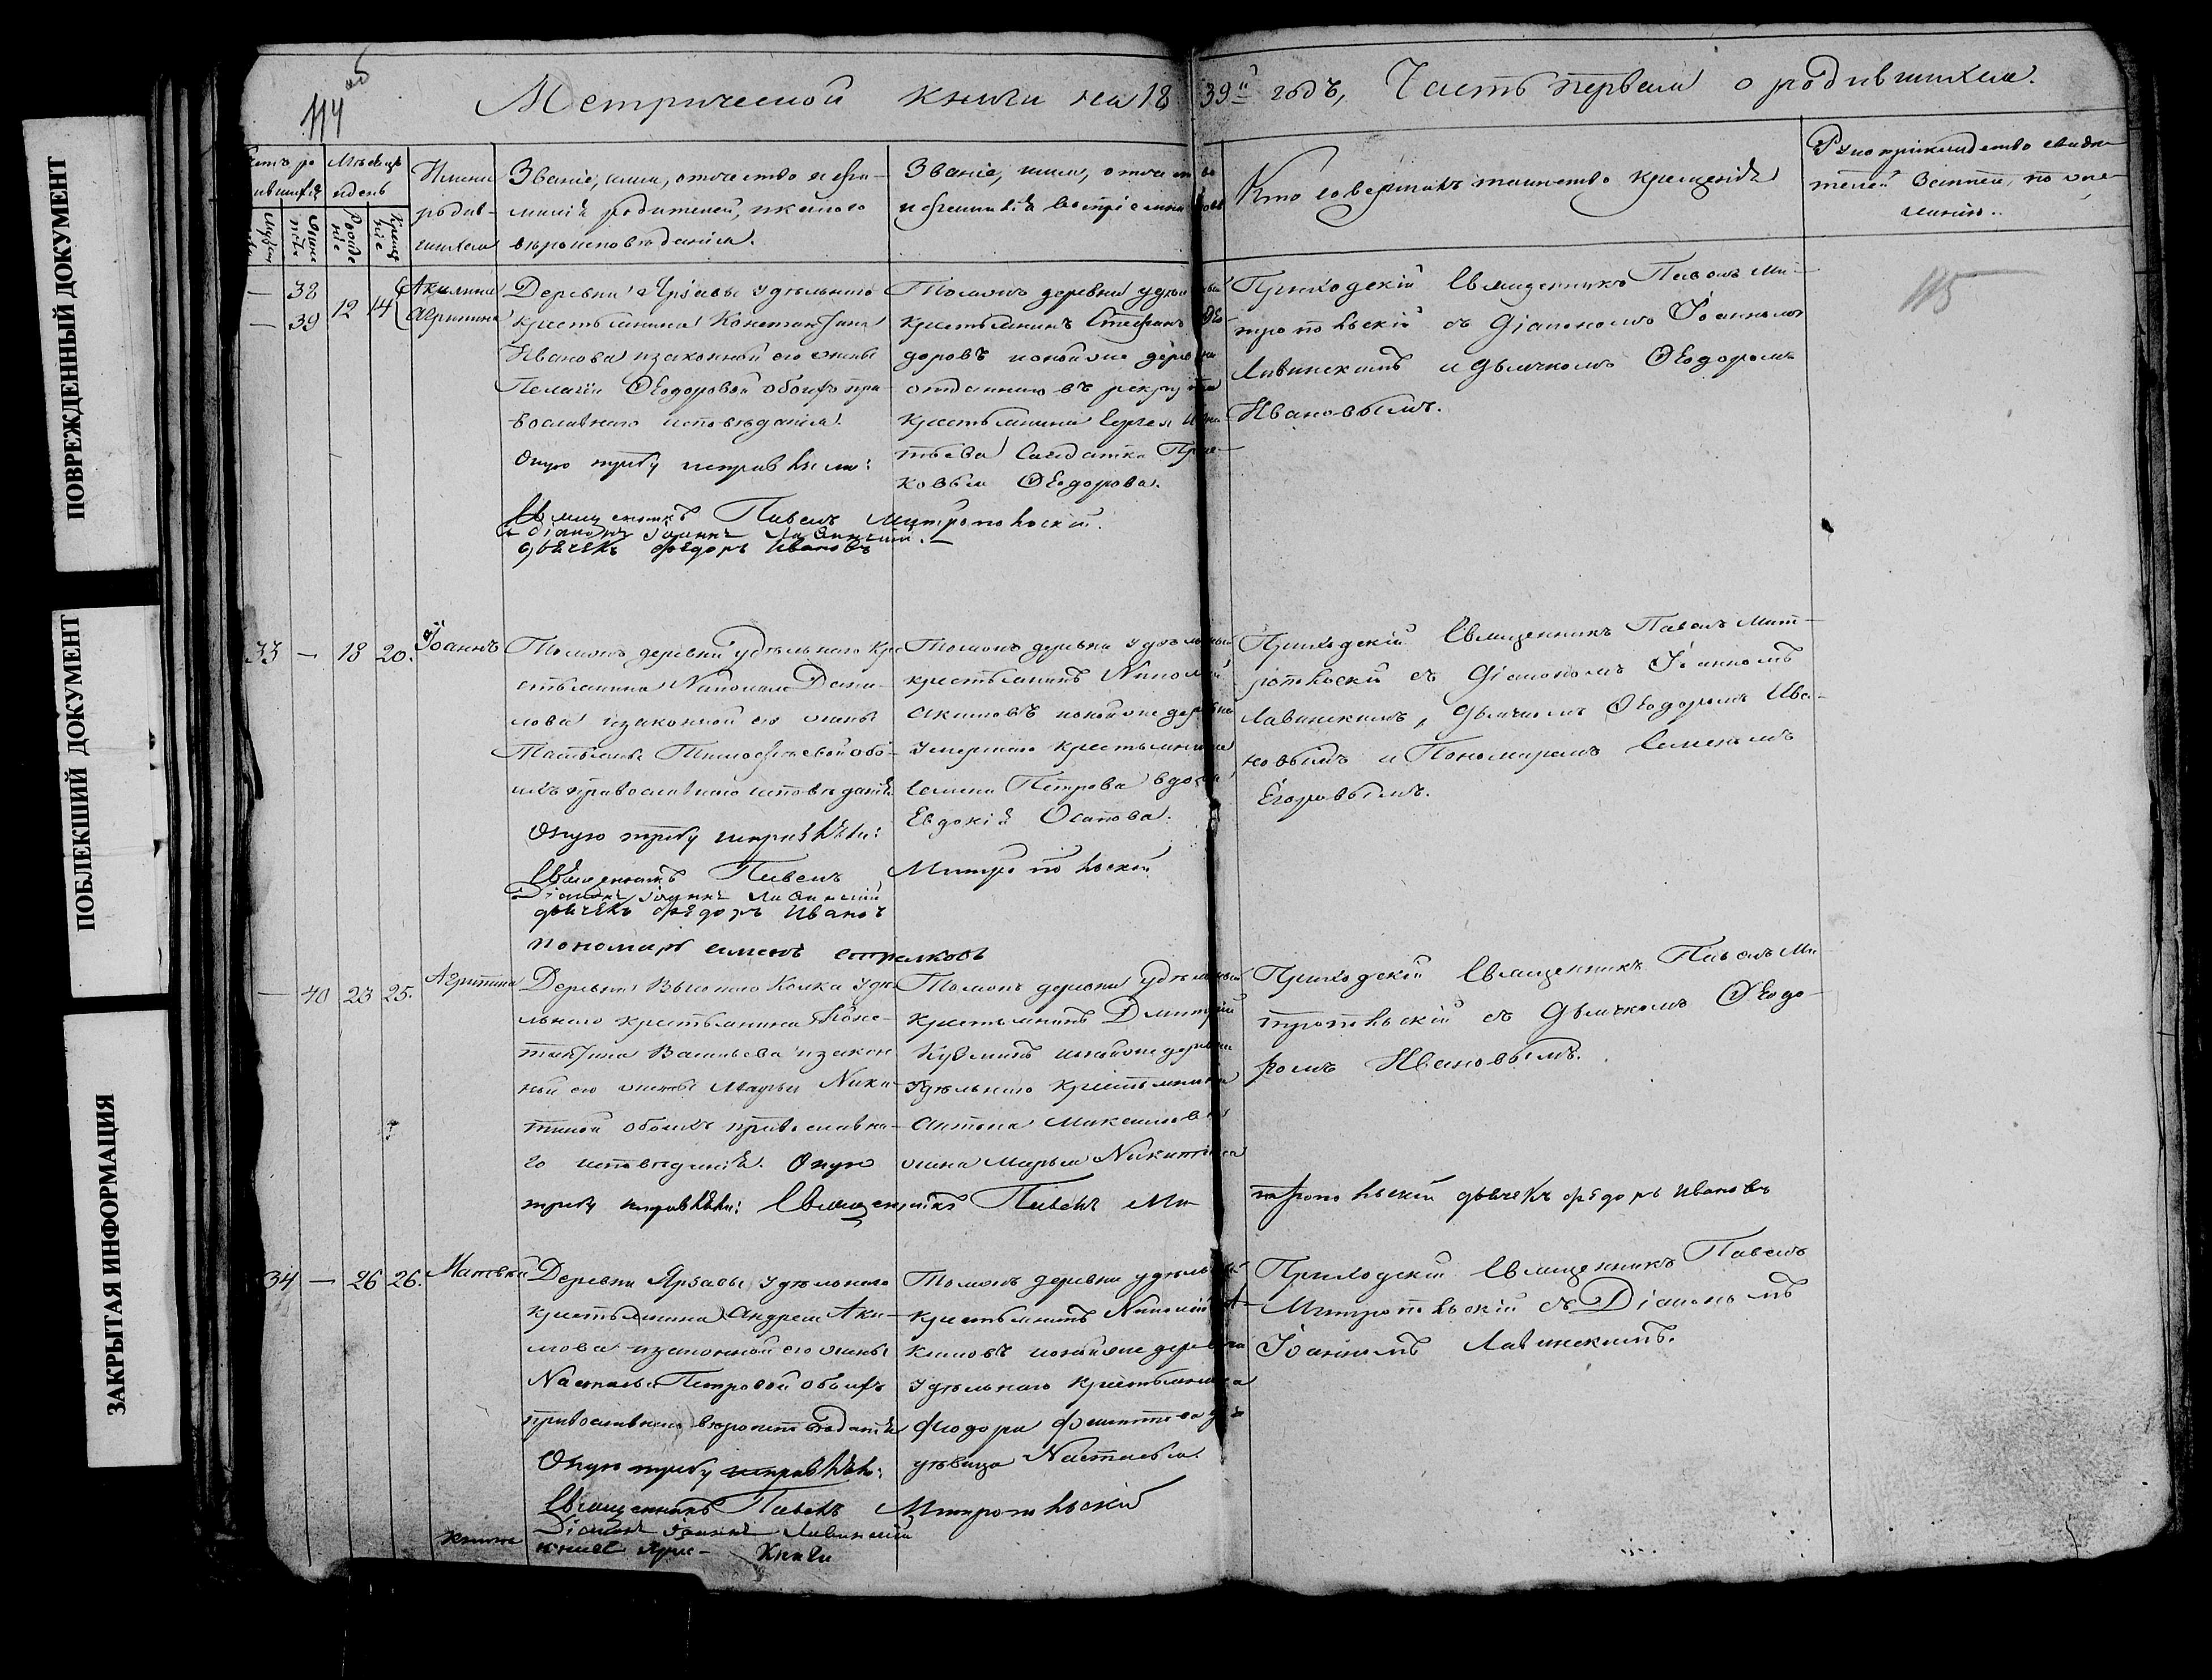 ПОВРЕЖДЕННЫЙ ДОКУМЕНТ
ПОБЛЕКШИЙ ДОКУМЕНТ
ЗАКРЫТАЯ ИНФОРМАЦИЯ
114 об
Метрической книги на 1839й годъ, Часть первая о родившихся.
Мѣсяцъ и день
Имена родив-
шихся
Званіе, имя, отчество и фа-
милія родителей, и какого
вѣроисповѣданія.
Званіе, имя, отчество
и фамилія воспріемниковъ
Кто совершалъ таинство крещенія
Рукоприкладство свидѣ-
телей записи по же-
ланію.
115
— 38 12 14 Акилина
— 39 Агрипина
Деревни Ярзавы удѣльнаго
крестьянина Константина
Иванова и законной его жены
Пелагіи Ѳеодоровой обоихъ пра-
вославнаго исповѣданія.
Оную требу исправляли:
Священникъ Павелъ Митропольскій.
Діаконъ Іоаннъ Лавинскій.
дьячекъ Федоръ Ивановъ
Томожъ деревни удѣльный
крестьянинъ Стефанъ Ѳео-
доровъ и онойже деревни
отданнаго въ рекруты
крестьянина Сергея
солдатка
Ѳеодорова.
Приходскій Священникъ Павелъ Ми-
тропольскій съ Діакономъ Іоанномъ
Лавинскимъ и дьячкомъ Ѳеодоромъ
Ивановымъ.
33 — 18 20. Іоаннъ
Томожъ деревни удѣльнаго кре-
стьянина Николая Дани-
лова и законной его жены
Татьяны Тимофѣевой обо-
ихъ православнаго исповѣданія
Оную требу исправляли:
Священникъ Павелъ Митропольскій
Діаконъ Іоаннъ Лавинскій
дьячекъ Федоръ Ивановъ
пономарь Семенъ Стрелковъ
Томожъ деревни удѣльный
крестьянинъ Николай
Акимовъ и онойже деревни
умершаго крестьянина
Семена Петрова вдова
Евдокія Осипова.
Приходскій Священникъ Павелъ Мит-
ропольскій съ Діакономъ Іоанномъ
Лавинскимъ, дьячкомъ Ѳеодоромъ Ива-
новымъ и Пономаремъ Семеномъ
Егоровымъ.
— 40 23 25. Агрипина
Деревни Высокаго Колка удѣ-
льнаго крестьянина Конс-
тантина Васильева и закон-
ной его жены Марьи Ники-
тиной обоихъ православна-
го исповѣданія. Оную
требу исправляли: Священникъ Павелъ Ми-
тропольскій дьячекъ Федоръ Ивановъ
Томожъ деревни удѣльный
крестьянинъ Дмитрій
Кузминъ и онойже деревни
удѣльнаго крестьянина
Антона Максимова
жена Марья Никитина
Приходскій Священникъ Павелъ Ми-
тропольскій съ дьячкомъ Ѳеодо-
ромъ Ивановымъ.
34 — 26 26. Матвѣй
Деревни Ярзавы удѣльнаго
крестьянина Андрея Аки-
мова и законной его жены
Настасьи Петровой обоихъ
православнаго вѣроисповѣданія
Оную требу исправляли:
Священникъ Павелъ Митропольскій
Діаконъ Іоаннъ Лавинскій
Томожъ деревни удѣльный
крестьянинъ Николай А-
кимовъ и онойже деревни
удѣльнаго крестьянина
Феодора
дѣвица Настасья.
Приходскій Священникъ Павелъ
Митропольскій съ Діакономъ
Іоанномъ Лавинскимъ.
книги